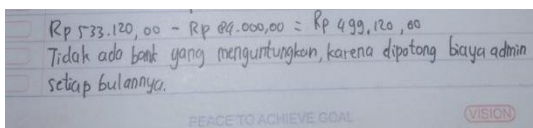 Rp 533.120,00 - Rp 84.000,00 = Rp 499.120,00
Tidak ada bank yang menguntungkan, karena dipotong biaya admin
setiap bulannya.
PEACE TO ACHIEVE GOAL
VISION